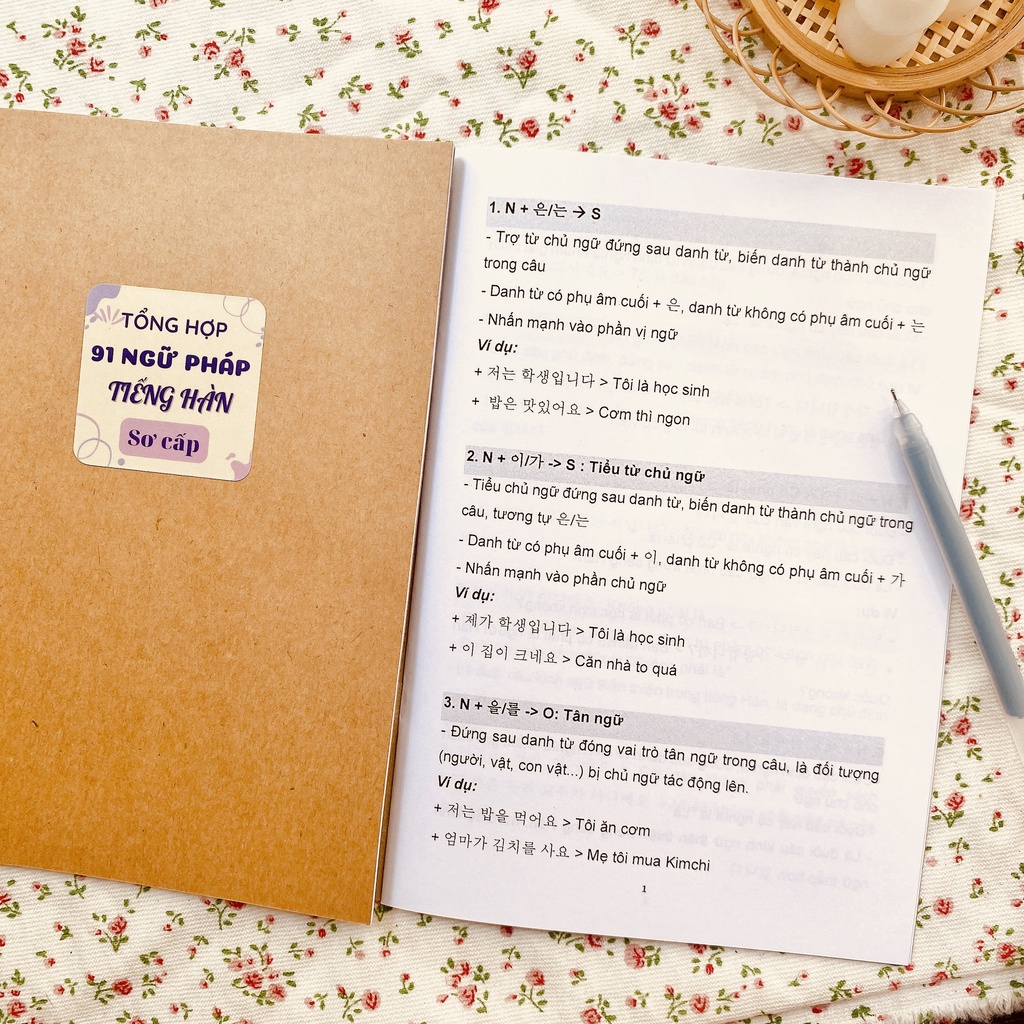 TỔNG HỢP
91 NGỮ PHÁP
TIẾNG HÀN
Sơ cấp
1. N + 은/는 → S
- Trợ từ chủ ngữ đứng sau danh từ, biến danh từ thành chủ ngữ
trong câu
- Danh từ có phụ âm cuối + 은, danh từ không có phụ âm cuối + 는
- Nhấn mạnh vào phần vị ngữ
Ví dụ:
+ 저는 학생입니다 > Tôi là học sinh
+ 밥은 맛있어요 > Cơm thì ngon
2. N + 이/가 -> S : Tiểu từ chủ ngữ
- Tiểu chủ ngữ đứng sau danh từ, biến danh từ thành chủ ngữ trong
câu, tương tự 은/는
- Danh từ có phụ âm cuối + 이, danh từ không có phụ âm cuối + 가
- Nhấn mạnh vào phần chủ ngữ
Ví dụ:
+ 제가 학생입니다 > Tôi là học sinh
+ 이 집이 크네요 > Căn nhà to quá
3. N + 을/를 -> O: Tân ngữ
- Đứng sau danh từ đóng vai trò tân ngữ trong câu, là đối tượng
(người, vật, con vật...) bị chủ ngữ tác động lên.
Ví dụ:
+ 저는 밥을 먹어요 > Tôi ăn cơm
+ 엄마가 김치를 사요 > Mẹ tôi mua Kimchi
1